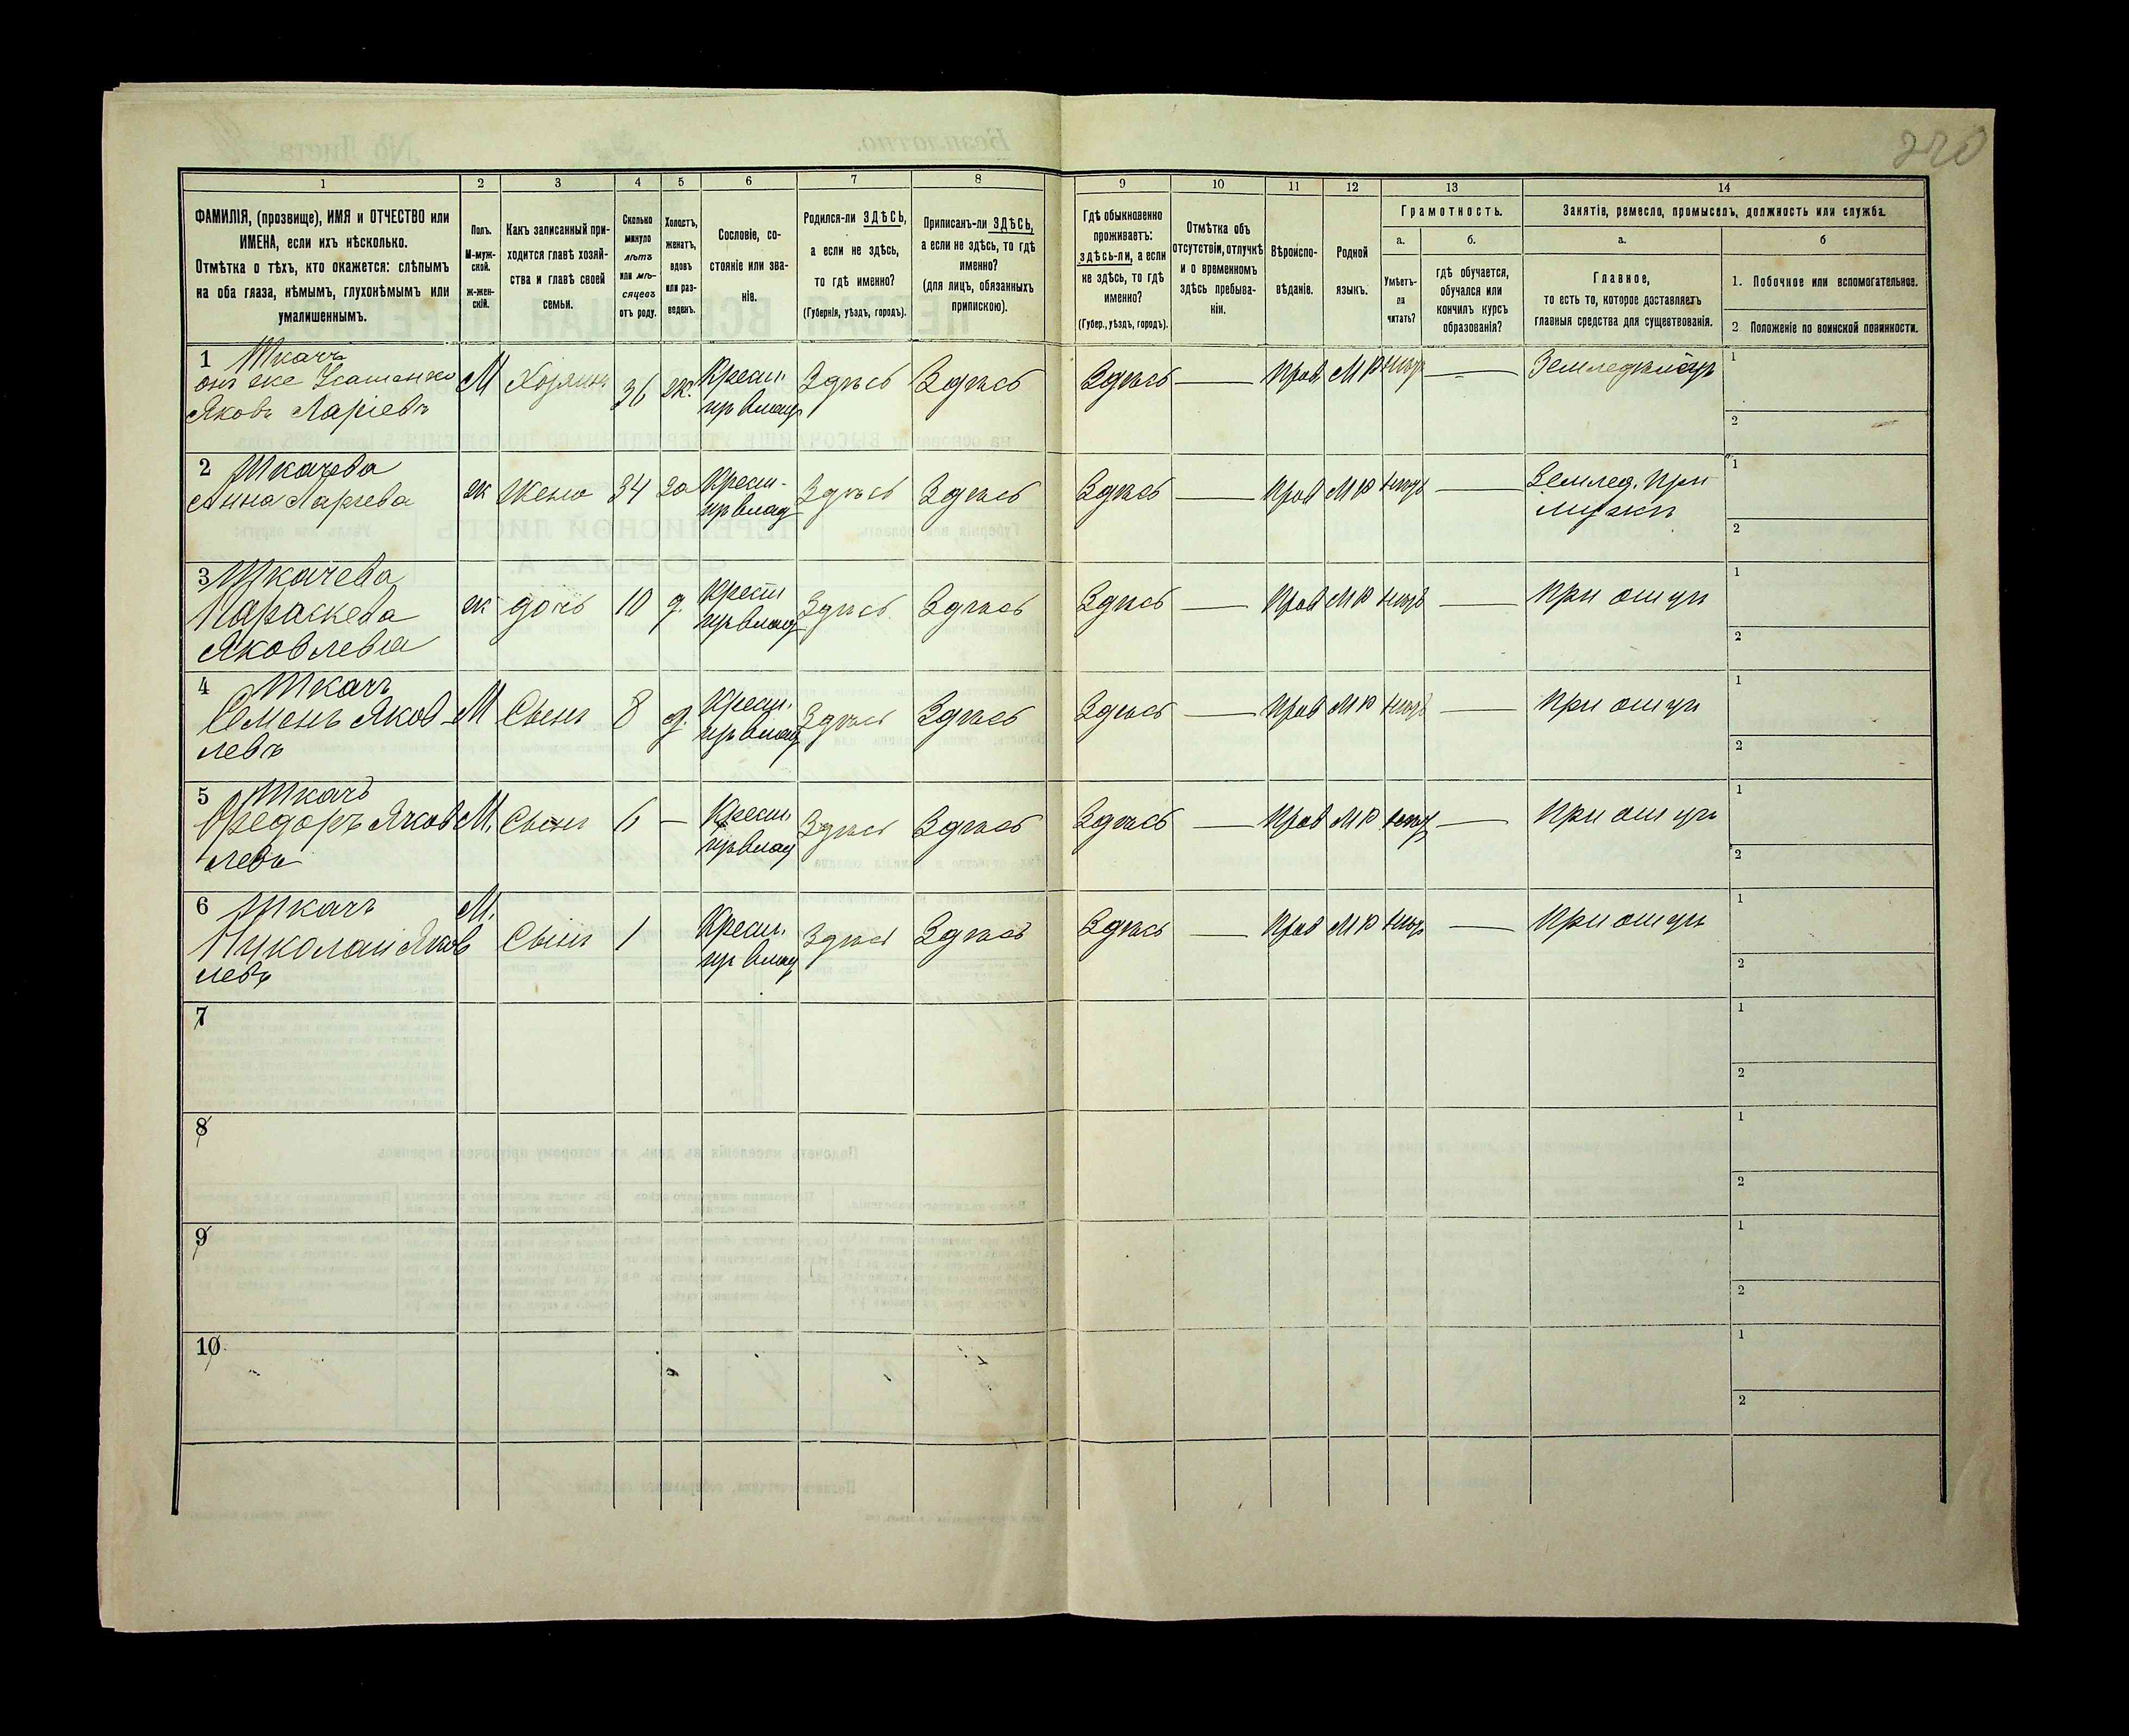 220
1 2 3 4 5 6 7 8 9 10 11 12 13 14
ФАМИЛІЯ, (прозвище), ИМЯ и ОТЧЕСТВО или
ИМЕНА, если ихъ нѣсколько.
Отмѣтка о тѣхъ, кто окажется: слѣпымъ
на оба глаза, нѣмымъ, глухонѣмымъ или
умалишеннымъ.
Полъ.
М-муж-
ской.
ж-жен-
скій.
Какъ записанный при-
ходится главѣ хозяй-
ства и главѣ своей
семьи.
Сколько
минуло
лѣтъ
или мѣ-
сяцевъ
отъ роду.
Холостъ,
женатъ,
вдовъ
или раз-
веденъ.
Сословіе, со-
стояніе или зва-
ніе.
Родился-ли ЗДѢСЬ,
а если не здѣсь,
то гдѣ именно?
(Губернія, уѣздъ, городъ).
Приписанъ-ли ЗДѢСЬ,
а если не здѣсь, то гдѣ
именно?
(для лицъ, обязанныхъ
припискою).
Гдѣ обыкновенно
проживаетъ:
здѣсь-ли, а если
не здѣсь, то гдѣ
именно?
(Губер., уѣздъ, городъ).
Отмѣтка объ
отсутствіи, отлучкѣ
и о временномъ
здѣсь пребыва-
ніи.
Вѣроиспо-
вѣданіе.
Родной
языкъ.
Грамотность.
а.
Умѣетъ-
ли
читать?
б.
гдѣ обучается,
обучался или
кончилъ курсъ
образованія?
Занятіе, ремесло, промыселъ, должность или служба.
а.
Главное,
то есть то, которое доставляетъ
главныя средства для существованія.
б
1. Побочное или вспомогательное.
2 Положеніе по воинской повинности.
1 Ткачъ
онъ же
Яковъ Ларіевъ
М Хозяинъ 36 ж. Крест. Здѣсь Здѣсь Здѣсь — Прав. М Р — Земледѣлецъ
1
2
2 Ткачева
Анна Ларіева
ж жена 34 за Крест. Здѣсь Здѣсь Здѣсь — Прав М Р — Землед. При
мужѣ
1
2
3 Ткачева
Параскева
Яковлева
ж дочь 10 д. Крест Здѣсь Здѣсь Здѣсь — Прав М Р — При отцѣ
1
2
4 Ткачъ
Семенъ Яков-
левъ
М Сынъ 8 Крест. Здѣсь Здѣсь Здѣсь — Прав М Р — При отцѣ
1
2
5 Ткачъ
Федоръ Яков
левъ
М. Сынъ 6 — Крест. Здѣсь Здѣсь Здѣсь — Прав М Р — При отцѣ
1
2
6 Ткачъ
Николай Яков
левъ
М. Сынъ 1 Крест. Здѣсь Здѣсь Здѣсь — Прав М Р — При отцѣ
1
2
7
1
2
8
1
2
9
1
2
10
1
2